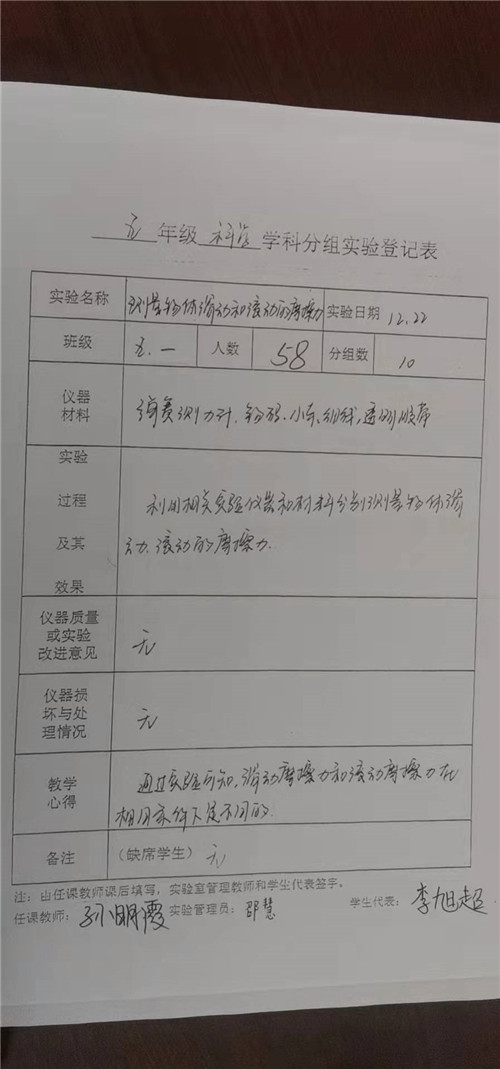 五年级 科学 学科分组实验登记表
实验名称 测量物体滑动和滚动的摩擦力 实验日期 12.22
班级 五.一 人数 58 分组数 10
仪器
材料
弹簧测力计、钩码、小车、细线、透明胶带
实验
过程
及其
效果
利用相关实验仪器和材料分别测量物体滑
动、滚动的摩擦力.
仪器质量
或实验
改进意见
无
仪器损
坏与处
理情况
无
教学
心得
通过实验可知,滑动摩擦力和滚动摩擦力在
相同条件下是不同的.
备注 (缺席学生) 无
注:由任课教师课后填写,实验室管理教师和学生代表签字。
任课教师:孙明霞 实验管理员:邵慧 学生代表:李旭超